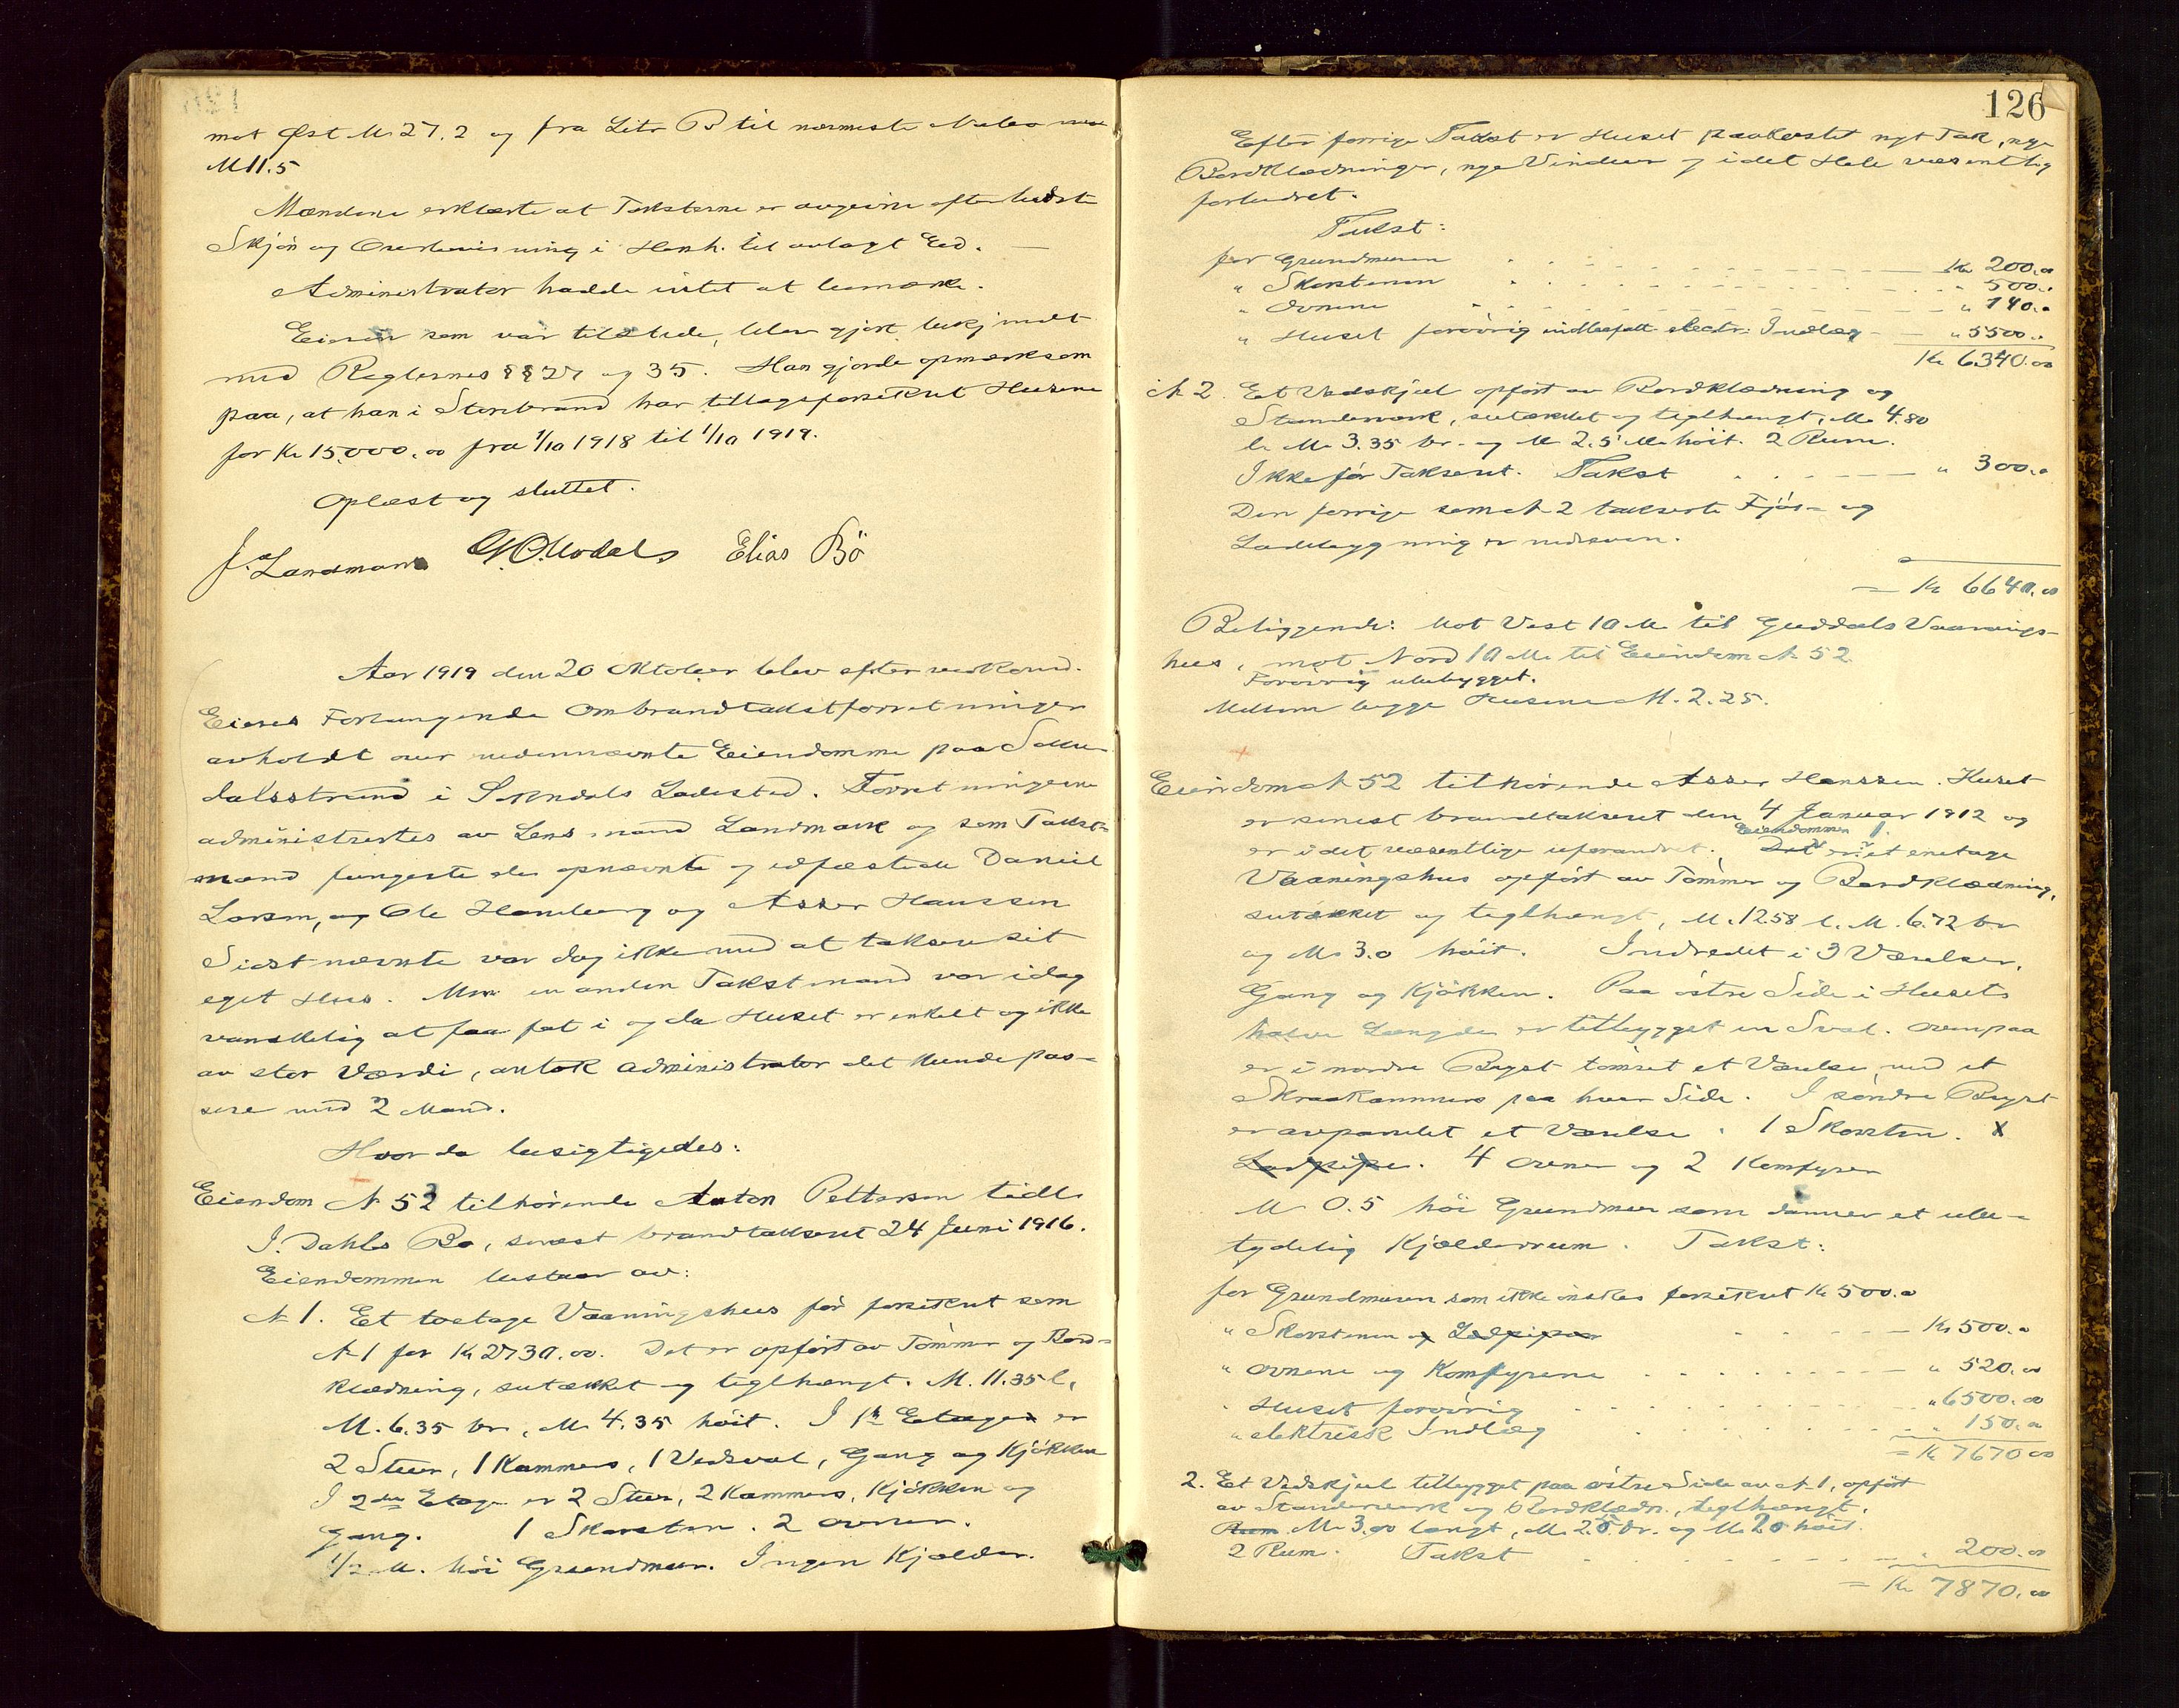 mot Øst M. 27.2 og fra Litr B til nærmeste Nabo mot
M 11.5
Mændene erklærte at Taksterne er avgivne efter bedste
Skjøn og Overbevisning i Henh. til avlagt Eed. —
Administrator hadde intet at bemærke.
Eieren som var tilstede, blev gjort bekjendt
med Reglernes §§ 27 og 35. Han gjorde opmerksom
paa, at han i Storebrand har tillægsforsikret Husene
for Kr 15.000.00 fra 1/10 1918 til 1/10 1919.
Oplæst og sluttet.
J. Landmark Elias Bö
Aar 1919 den 20 Oktober blev efter vedkomd.
Eieres Forlangende Ombrandtakstforretninger
avholdt over nedennævnte Eiendomme paa
dalsstrand i Sokndals Ladested. Forretningerne
administrertes av Lensmand Landmark og som Takst-
mænd fungerte de opnævnte og edfæstede Daniel
Larsen, og Ole Hamberg og Asser Hanssen
Sidstnævnte var dog ikke med at taksere sit
eget Hus. Men en anden Takstmand var idag
vanskelig at faa fat i og da Huset er enkelt og ikke
av stor Værdi, antok administrator det kunde pas-
sere med 2 Mand.
Hvor da besigtigedes:
Eiendom № 52 tilhørende Anton Pettersen tidls
J. Dahls Bo, senest brandtakseret 24 Juni 1916.
Eiendommen bestaar av:
№ 1. Et toetage Vaaningshus før forsikret som
№ 1 for Kr 2730.00. Det er opført av Tømmer og Bord-
klædning, sutækket og teglhængt. M. 11.35 l,
M. 6.35 br, M. 4.35 höit. I 1ste Etage er
2 Stuer, 1 Kammers, 1 Vedsval, Gang og Kjøkken
I 2den Etage er 2 Stuer, 2 Kammers, Kjøkken og
Gang. 1 Skorsten. 2 ovner.
1/2 M. höi Grundmur. Ingen Kjælder.
126
Efter forrige Takst er Huset paakostet nyt Tak, nye
Bordklædninger, nye Vinduer og i det Hele væsentlig
forbedret.
Takst:
for Grundmuren Kr 200.00
" Skorstenen " 500.00
" Ovnene " 140.00
" Huset forøvrig indbefatt. electr. Indlæg " 5500.00
Kr 6340.00
№ 2. Et Vedskjul opført av Bordklædning og
Stenderverk, sutækket og teglhængt, M. 4.80
l. M. 3.35 br. og M 2.5 M höit. 2 Rum.
Ikke før Takseret. Takst " 300.00
Den forrige som № 2 takserte Fjös- og
Ladebygning er nedreven.
= Kr 6640.00
Beliggende: Mot Vest 10 M. til Guddals Vaanings-
hus, mot Nord 10 M. til Eiendom № 52
Forøvrig ubebygget.
Mellem begge Husene M. 2.25.
Eiendom № 52 tilhørende Asser Hanssen. Huset
er senest brandtakseret den 4 Januar 1912 og
er i det væsentlige uforandret. Eiendommen 1. Det er et enetage
Vaaningshus opført av Tømmer og Bordklædning,
sutækket og teglhængt, M. 12.58 l. M. 6.72 br
og M. 3.0 höit. Indredet i 3 Værelser,
Gang og Kjökken. Paa östre Side i Husets
halve Længde er tilbygget en Sval. Ovenpaa
er i nordre Bryst tømret et Værelse med et
Skraakammers paa hver Side. I söndre Bryst
er avpanelet et Værelse. 1 Skorsten.
Lodpipe. 4 ovner og 2 Komfyrer
M 0.5 höi Grundmur som danner et ube-
tydelig Kjælderrum. Takst:
for Grundmuren som ikke önskes forsikret Kr 500.00
" Skorstenen og Lodpipen Kr 500.00
" Ovnene og Komfyrene " 520.00
" Huset forøvrig " 6500.00
" elektrisk Indlæg " 150.00
= Kr 7670.00
2. Et Vedskjul tilbygget paa østre Side av № 1, opført
av Stenderverk og Bordklædn., teglhængt.
Rum M. 3.00 langt, M. 2.5 br. og M 2.0 höit.
2 Rum. Takst " 200.00
= Kr 7870.00